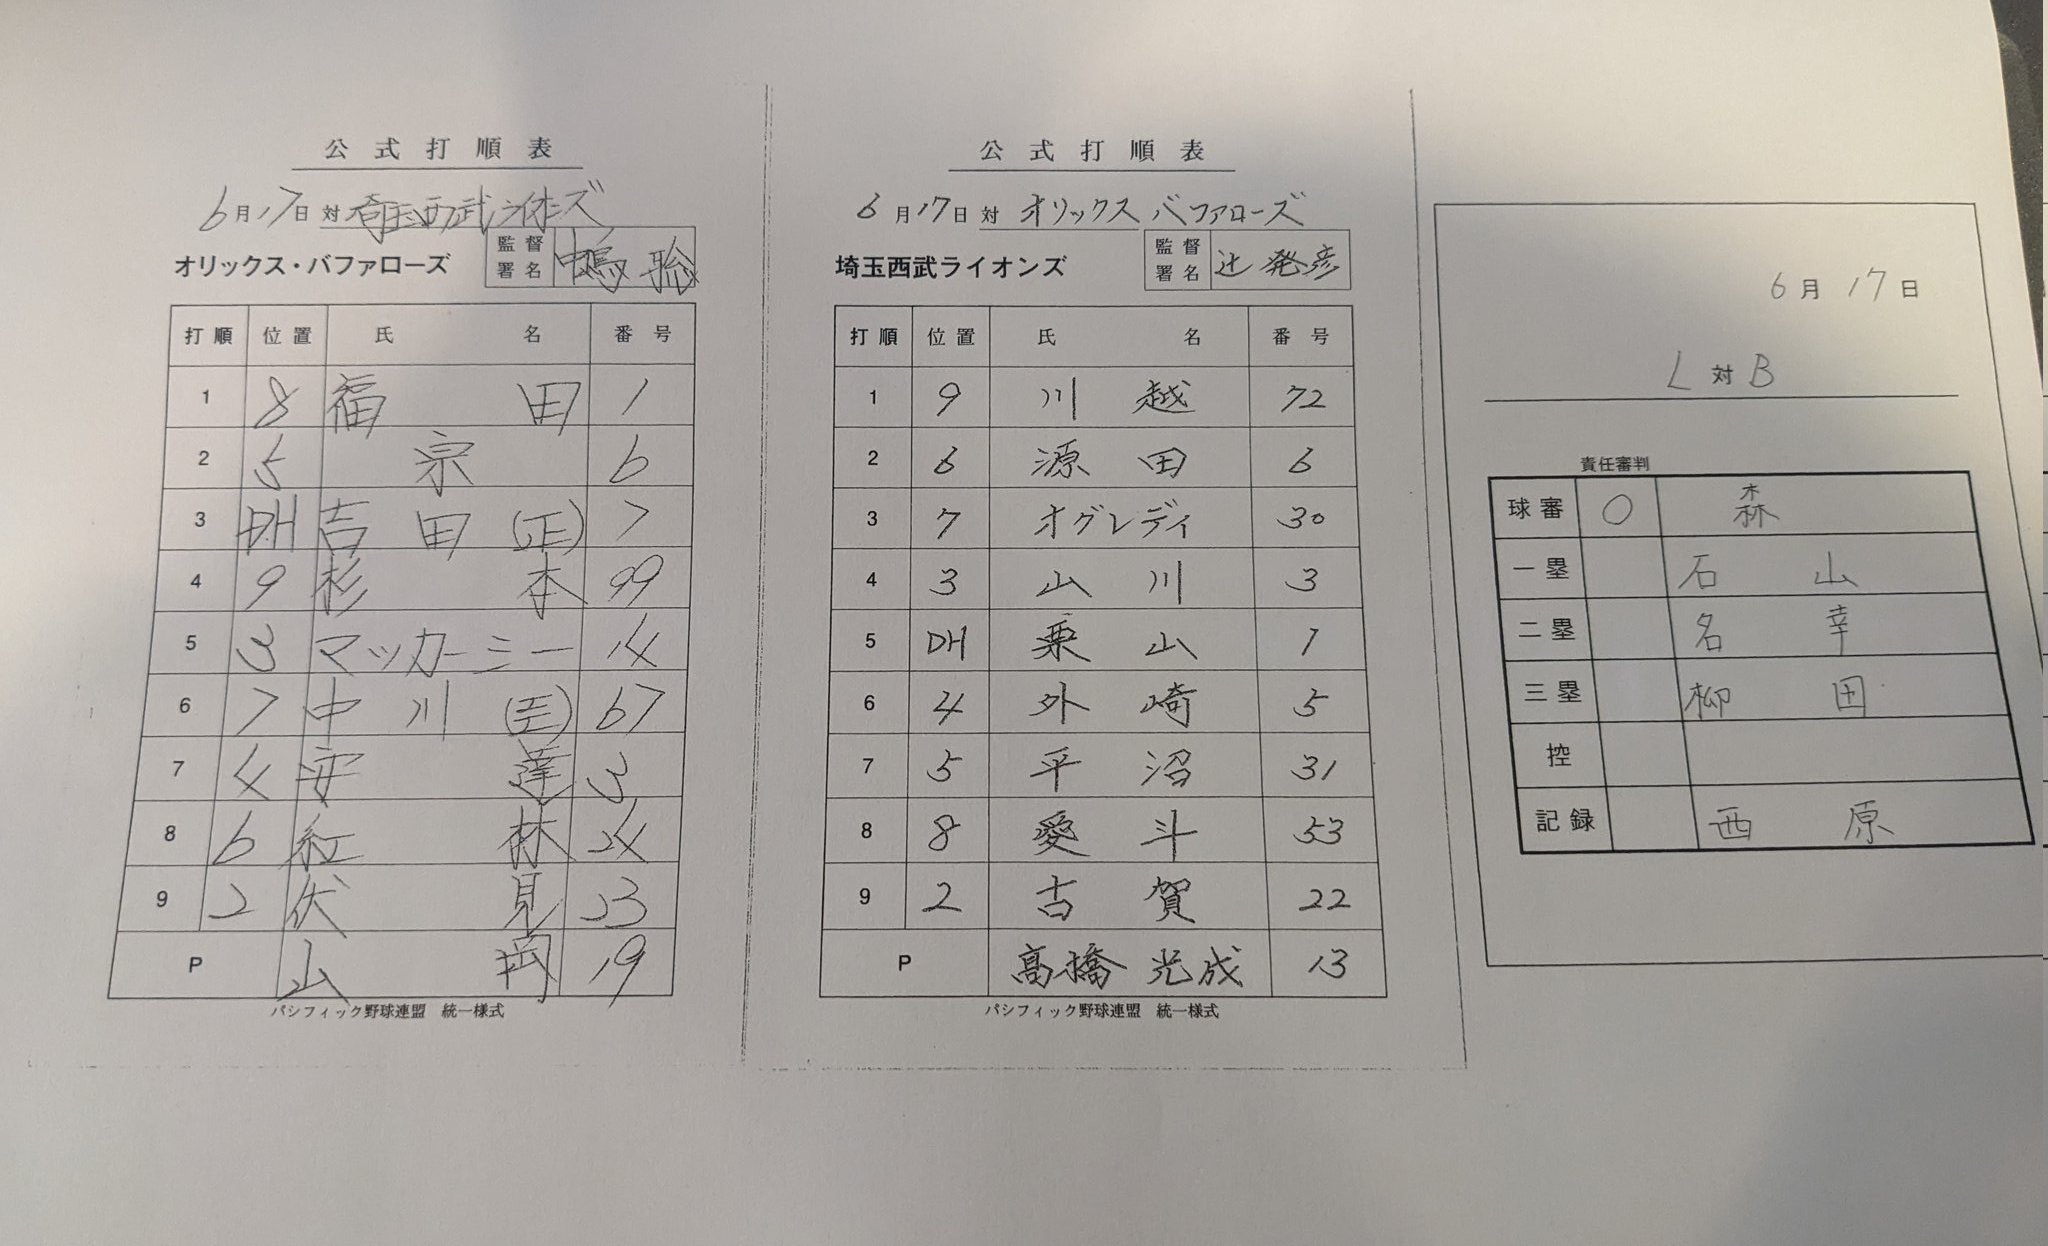 公式打順表
6月17日対 埼玉西武ライオンズ
オリックス・バファローズ 監督署名 中嶋 聡
打順 位置 氏名 番号
1 8 福田 1
2 5 宗 6
3 DH 吉田(正) 7
4 9 杉本 99
5 3 マッカーシー 14
6 7 中川(圭) 67
7 4 安達 3
8 6 紅林 24
9 2 伏見 23
P 山岡 19
パシフィック野球連盟 統一様式
公式打順表
6月17日対 オリックスバファローズ
埼玉西武ライオンズ 監督署名 辻 発彦
打順 位置 氏名 番号
1 9 川越 72
2 6 源田 6
3 7 オグレディ 30
4 3 山川 3
5 DH 栗山 1
6 4 外崎 5
7 5 平沼 31
8 8 愛斗 53
9 2 古賀 22
P 髙橋光成 13
パシフィック野球連盟 統一様式
6月17日
L対B
責任審判
球審 ○ 森
一塁 石山
二塁 名幸
三塁 柳田
控
記録 西原